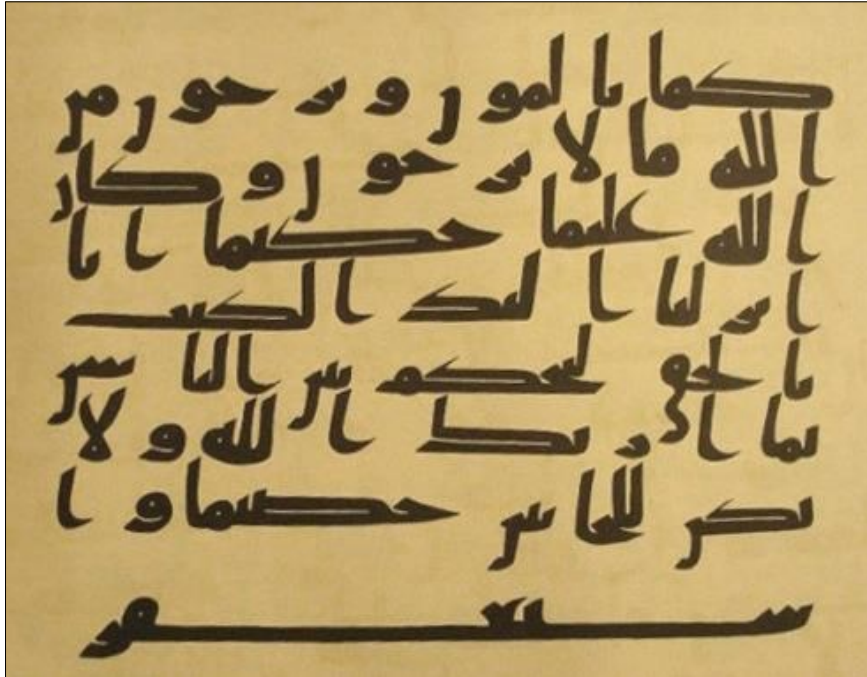 كما تالمون وترجون من
الله ما لا يرجون وكان
الله عليما حكيما انا
انزلنا اليك الكتب
بالحق لتحكم بين الناس
بما اريك الله ولا
تكن للخاينين خصيما وا
ستغفر